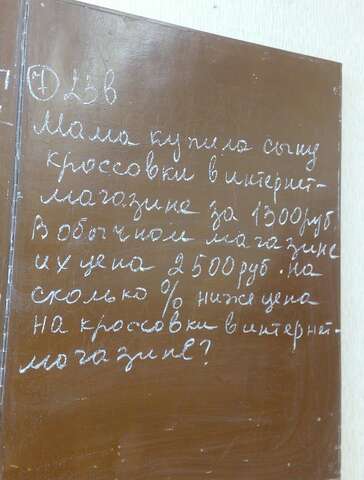 7 23 в
Мама купила сыну
кроссовки в интернет-
магазине за 1300 руб.
В обычном магазине
их цена 2500 руб. на
сколько % ниже цена
на кроссовки в интернет-
магазине?